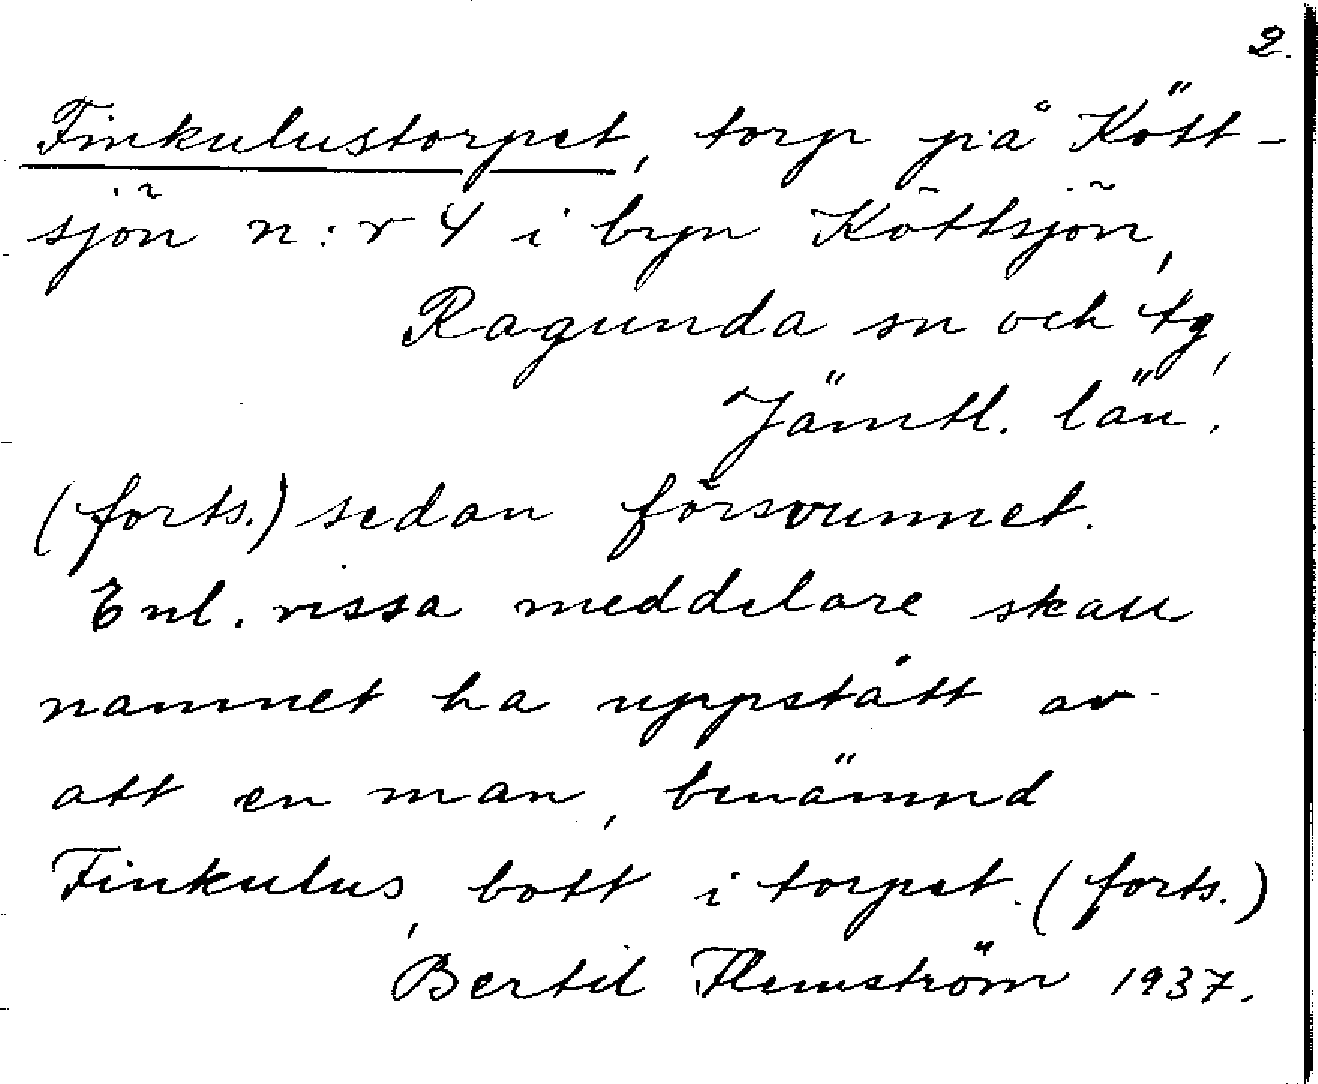 2.
Finkulustorpet, torp på Kött-
sjön n:r 4 i byn Köttsjön,
Ragunda sn och tg,
Jämtl. län.
(forts.) sedan försvunnet.
Enl. vissa meddelare skall
namnet ha uppstått av
att en man, benämnd
Finkulus, bott i torpet. (forts.)
Bertil Flemström 1937.